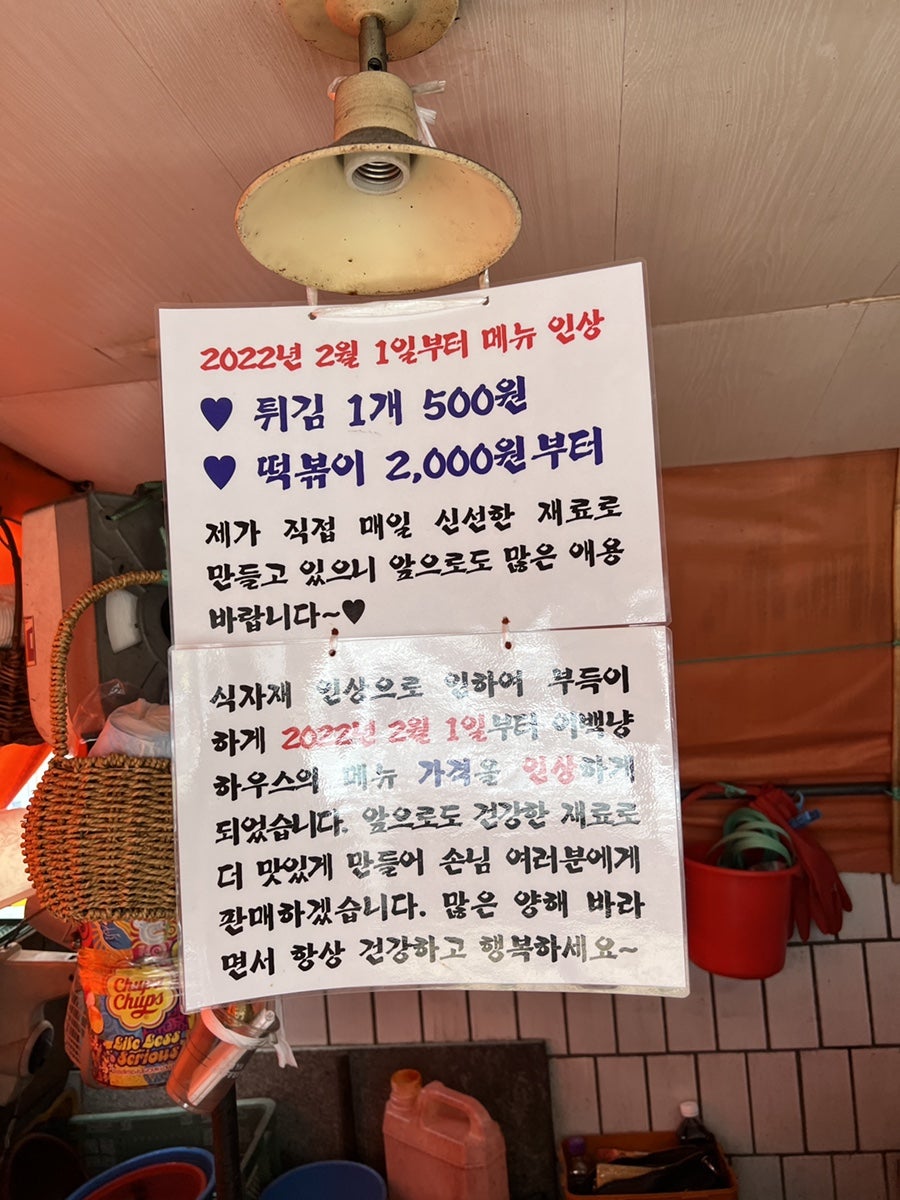 2022년 2월 1일부터 메뉴 인상
♥ 튀김 1개 500원
♥ 떡볶이 2,000원부터
제가 직접 매일 신선한 재료로
만들고 있으니 앞으로도 많은 애용
바랍니다~♥
식자재 인상으로 인하여 부득이
하게 2022년 2월 1일부터 이백냥
하우스의 메뉴 가격을 인상하게
되었습니다. 앞으로도 건강한 재료로
더 맛있게 만들어 손님 여러분에게
판매하겠습니다. 많은 양해 바라
면서 항상 건강하고 행복하세요~
Chupa
Chups
Life Less
Serious